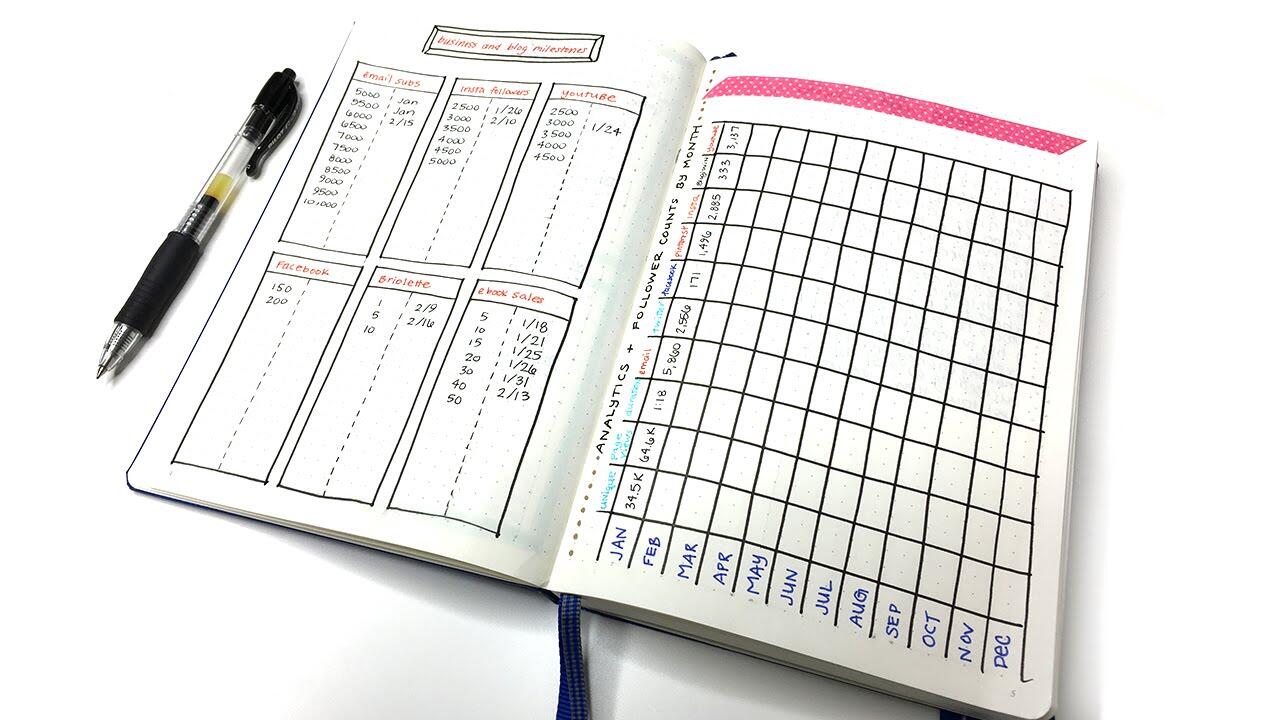 business and blog milestones
email subs
5000 Jan
5500 Jan
6000 2/15
6500
7000
7500
8000
8500
9000
9500
10,000
insta followers
2500 1/26
3000 2/10
3500
4000
4500
5000
youtube
2500
3000 1/24
3500
4000
4500
Facebook
150
200
Briolette
1 2/9
5 2/16
10
ebook sales
5 1/18
10 1/21
15 1/25
20 1/26
30 1/31
40 2/13
50
ANALYTICS + FOLLOWER COUNTS BY MONTH
unique page views duration email twitter facebook pinterest insta bloglovin youtube
JAN 34.5K 64.6K 1:18 5,860 2,556 171 1,496 2,885 333 3,137
FEB
MAR
APR
MAY
JUN
JUL
AUG
SEP
OCT
NOV
DEC
5